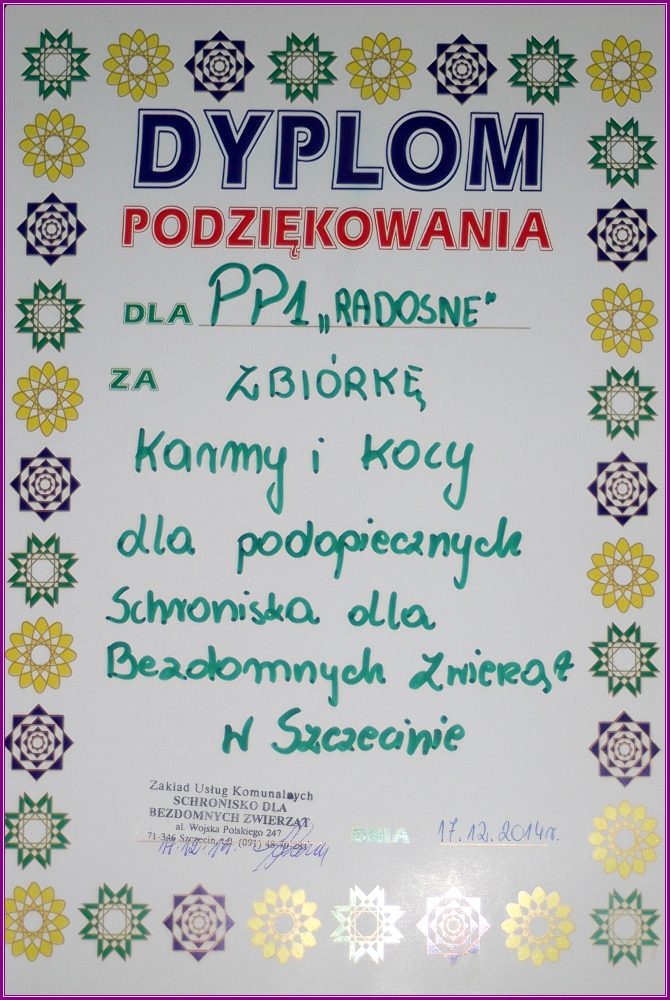 DYPLOM
PODZIĘKOWANIA
DLA PP1 „RADOSNE”
ZA ZBIÓRKĘ
Karmy i kocy
dla podopiecznych
Schroniska dla
Bezdomnych Zwierząt
w Szczecinie
Zakład Usług Komunalnych
SCHRONISKO DLA
BEZDOMNYCH ZWIERZĄT
al. Wojska Polskiego 247
71-346 Szczecin, tel. (091)
17.12.14.
DNIA 17.12.2014r.